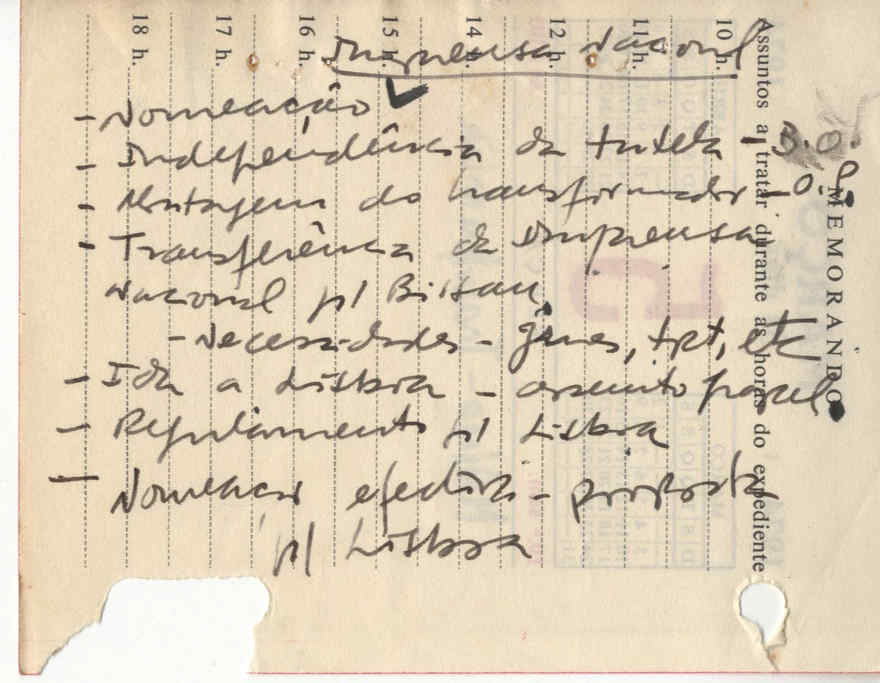 Imprensa Nacional
- Nomeação
- Independência da tutela - B.O.
- Montagem do transformador - O.P.
- Transferência da Imprensa
Nacional p/ Bissau
- Necessidades - géneros, trpt, etc
- Ida a Lisboa - assunto papel
- Regulamento p/ Lisboa
- Nomeação efectiva - proposta
p/ Lisboa
MEMORANDO
Assuntos a tratar durante as horas do expediente
10 h.
11 h.
12 h.
14 h.
15 h.
16 h.
17 h.
18 h.